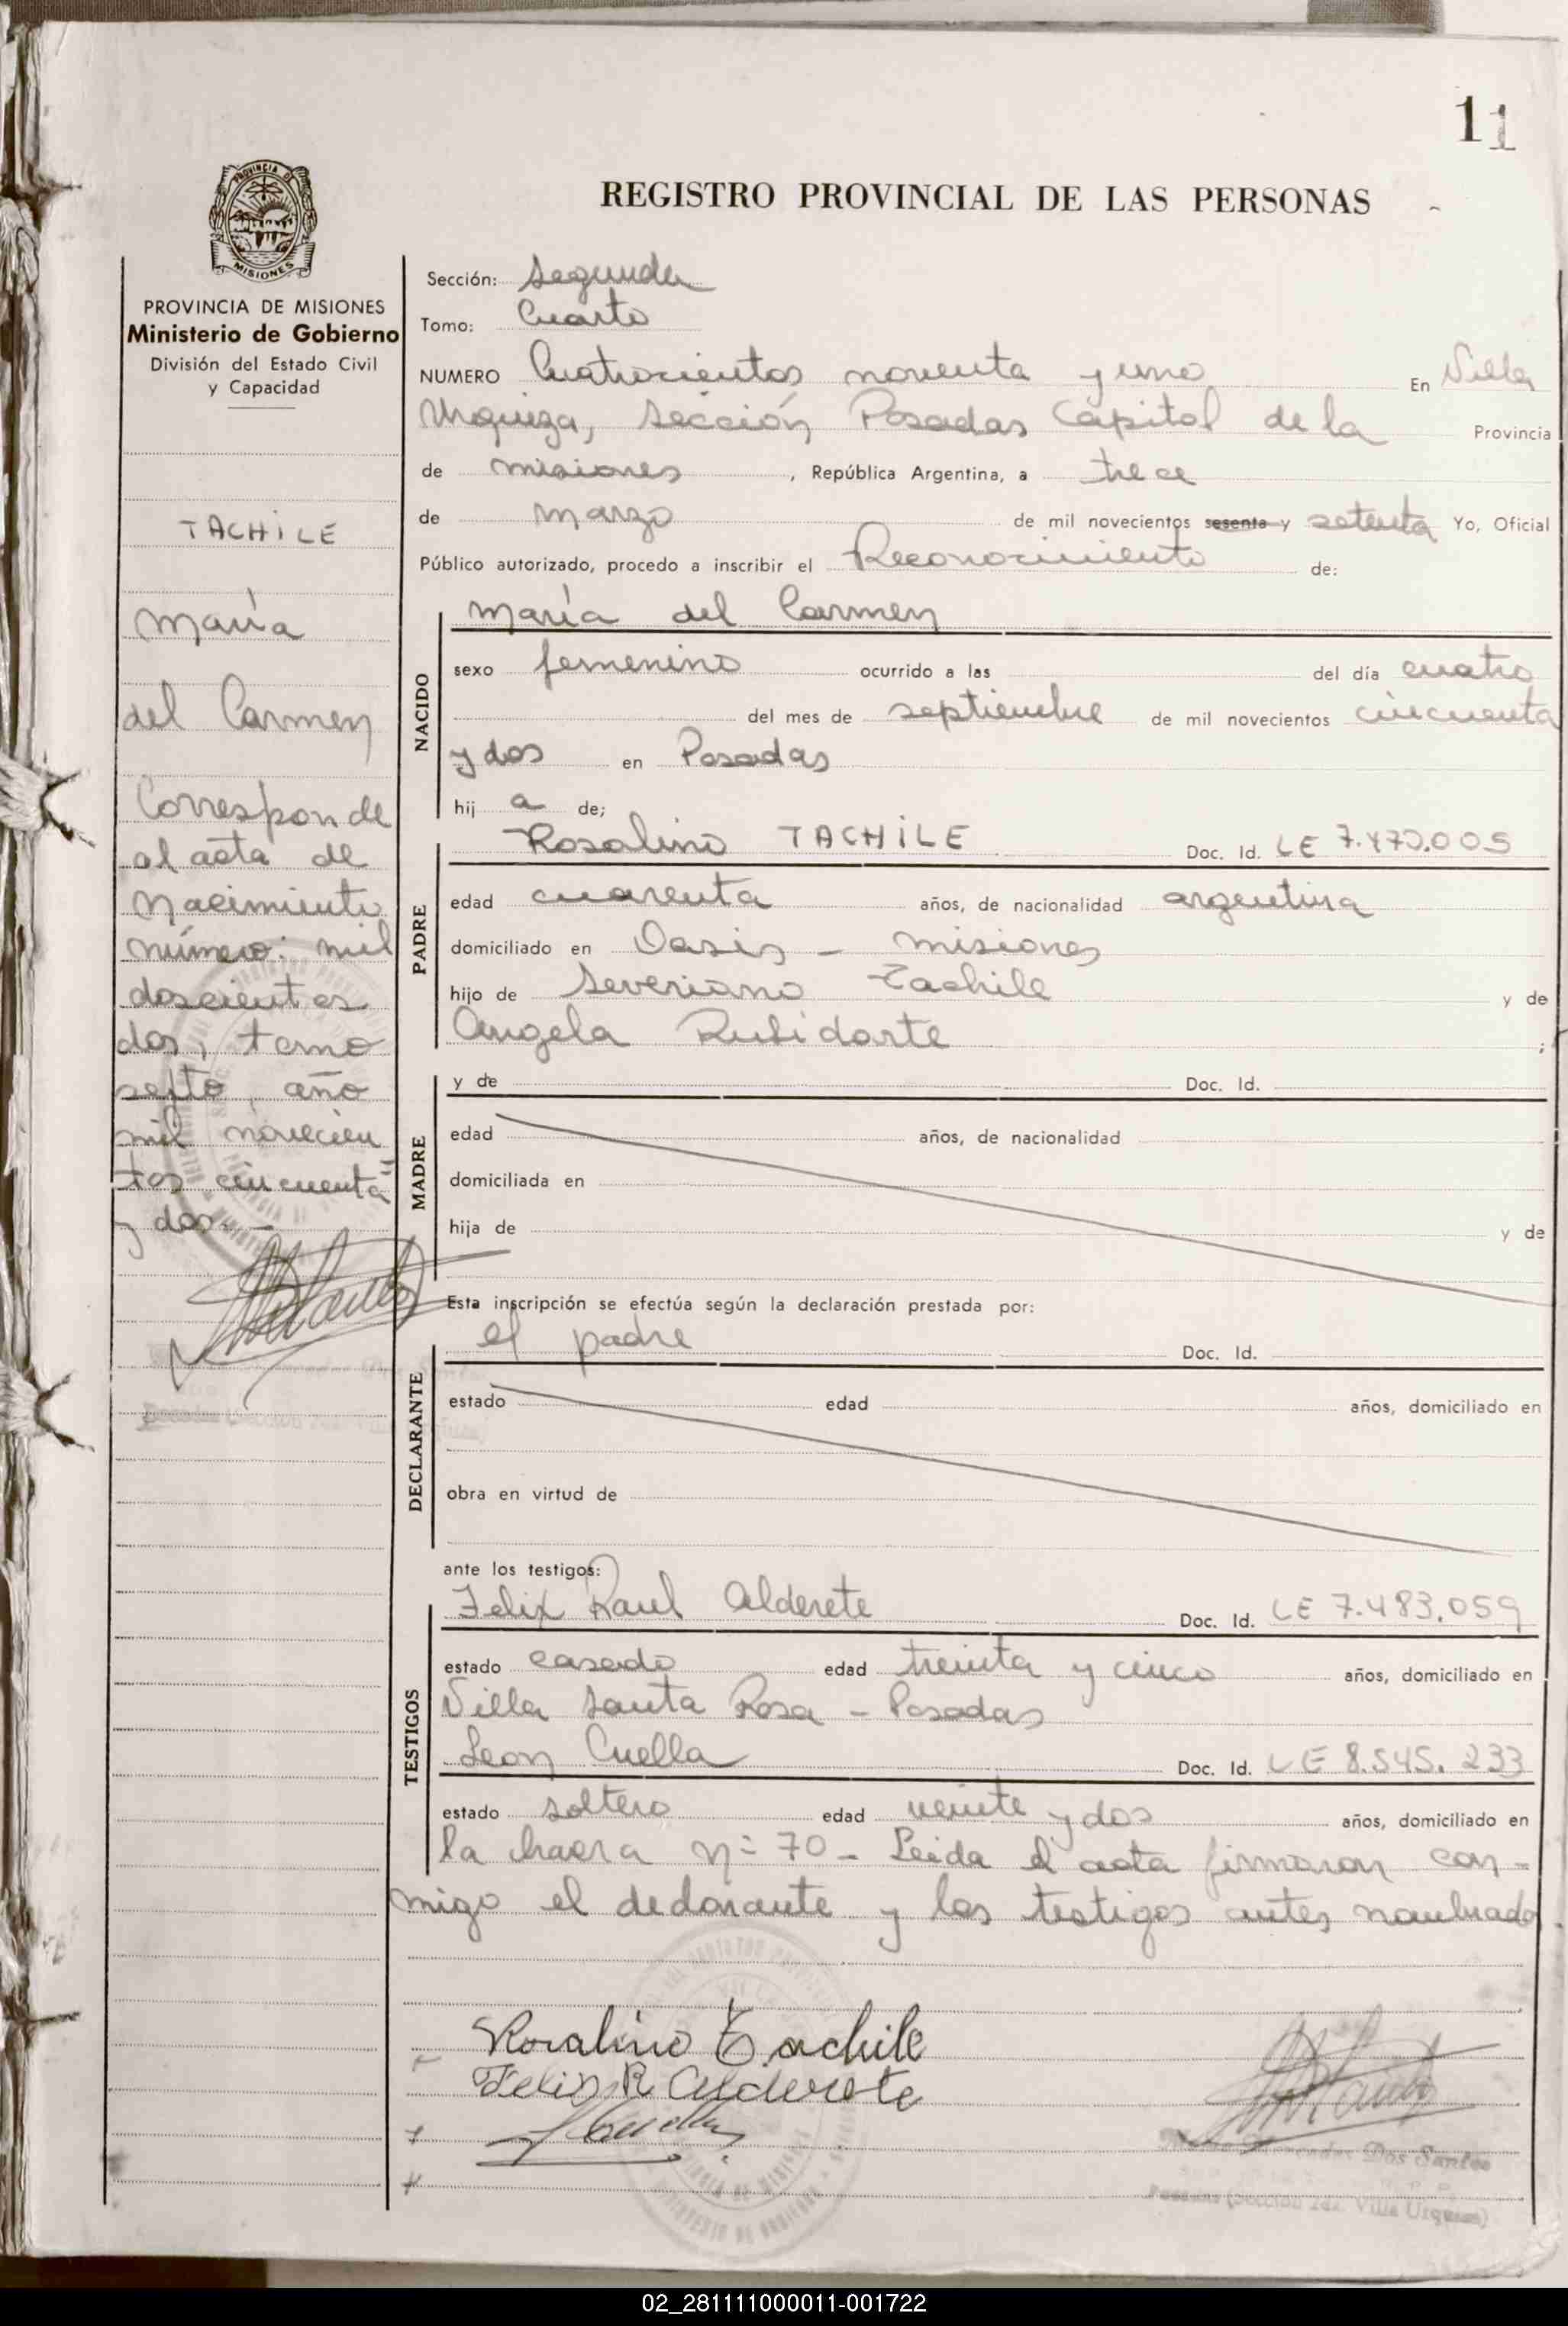 11
REGISTRO PROVINCIAL DE LAS PERSONAS
PROVINCIA DE MISIONES
PROVINCIA DE MISIONES
Ministerio de Gobierno
División del Estado Civil
y Capacidad
TACHILE
María
del Carmen
Corresponde
al acta de
nacimiento
número: mil
doscientos
dos, tomo
septo, año
mil novecien
tos cincuenta
y dos.-
Sección: Segunda
Tomo: Cuarto
NUMERO Cuatrocientos noventa y uno En Villa
Urquiza, Sección Posadas Capital de la Provincia
de misiones, República Argentina, a trece
de marzo de mil novecientos sesenta y setenta Yo, Oficial
Público autorizado, procedo a inscribir el Reconocimiento de:
NACIDO
María del Carmen
sexo femenino ocurrido a las del día cuatro
del mes de septiembre de mil novecientos cincuenta
y dos en Posadas
hij a de;
PADRE
Rosalino TACHILE Doc. Id. LE 7.473.005
edad cuarenta años, de nacionalidad argentina
domiciliado en Oasis - misiones
hijo de Severiano Tachile y de
Angela Rubidarte ;
MADRE
y de Doc. Id.
edad años, de nacionalidad
domiciliada en
hija de y de
Esta inscripción se efectúa según la declaración prestada por:
DECLARANTE
el padre Doc. Id.
estado edad años, domiciliado en
obra en virtud de
ante los testigos:
TESTIGOS
Felix Raul Alderete Doc. Id. LE 7.483.059
estado casado edad treinta y cinco años, domiciliado en
Villa Santa Rosa - Posadas
Leon Cuella Doc. Id. LE 8.545.233
estado soltero edad veinte y dos años, domiciliado en
la chacra nº 70 - Leida el acta firmaron con-
migo el declarante y los testigos antes nombrados.
Rosalino Tachile
Felix R Alderete
Dos Santos
Posadas (Sección 2da. Villa Urquiza)
02_281111000011-001722